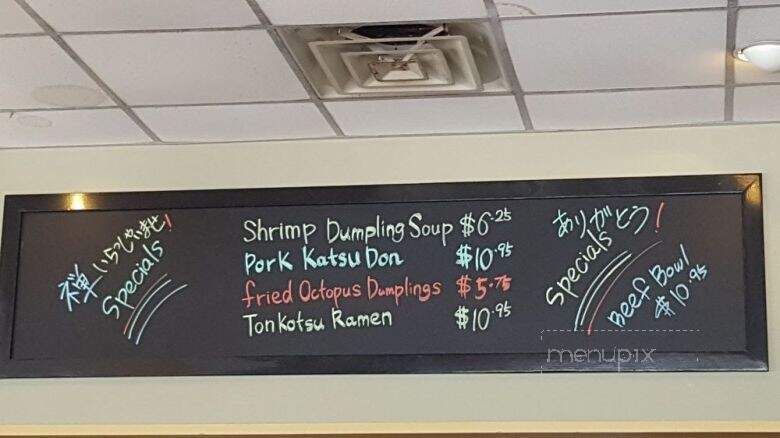 禅 いらっしゃいませ!
Specials
Shrimp Dumpling Soup $6.25
Pork Katsu Don $10.95
fried Octopus Dumplings $5.75
Tonkotsu Ramen $10.95
ありがとう!
Specials
Beef Bowl
$10.95
menupix